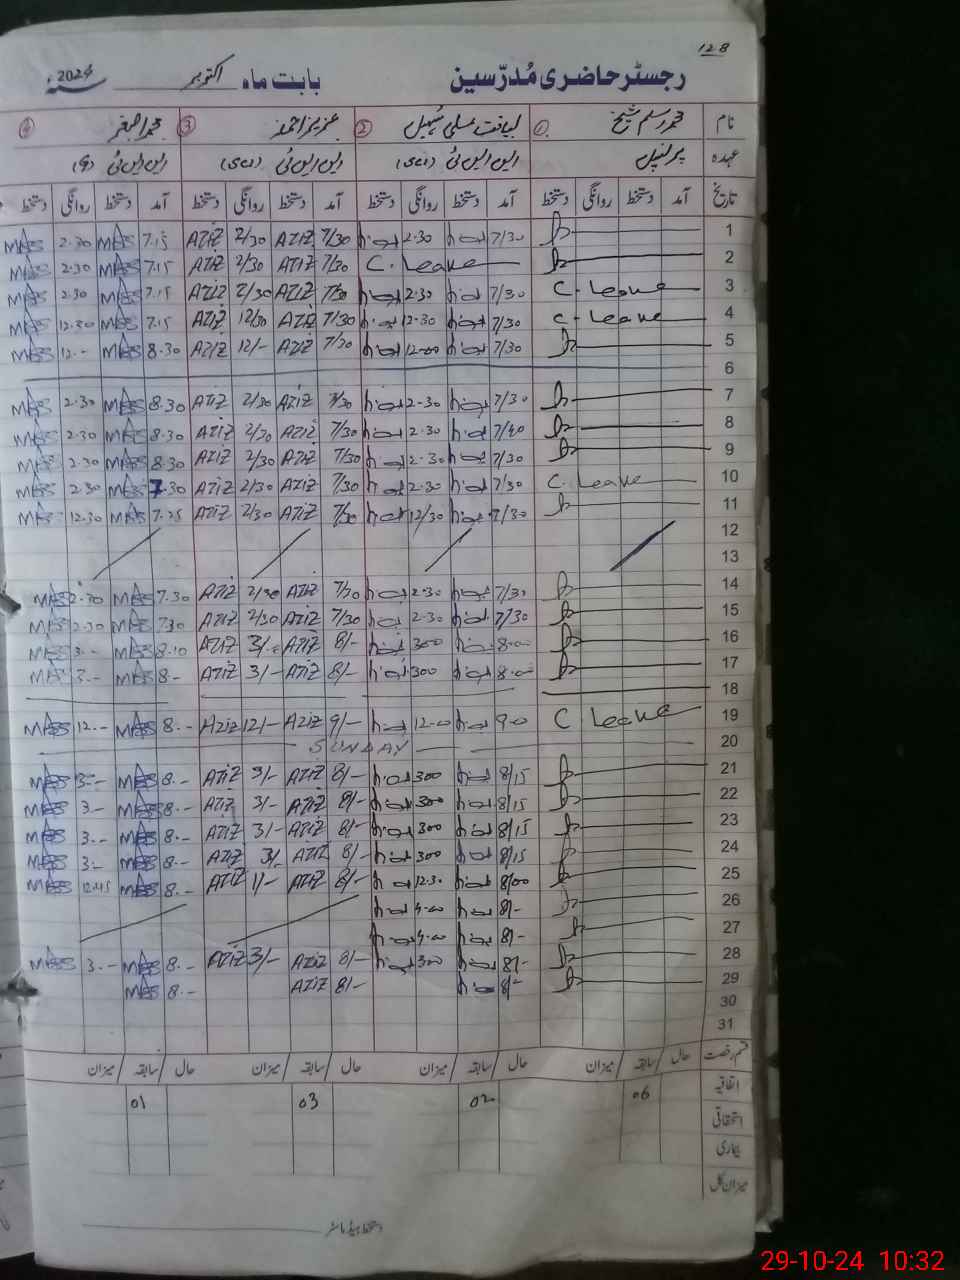 128
رجسٹر حاضری مُدرّسین بابت ماہ اکتوبر سنہ 2024ء
نام محمد رستم شیخ ① لیاقت علی سہیل ② عزیز احمد ③ محمد اصغر ④
عہدہ پرنسپل ایس ایس ٹی (Sci) ایس ایس ٹی (Sci) ایس ایس ٹی (G)
تاریخ آمد دستخط روانگی دستخط آمد دستخط روانگی دستخط آمد دستخط روانگی دستخط آمد دستخط روانگی دستخط
1 7/30 2.30 7/30 AZIZ 2/30 AZIZ 7.15 MAS 2.30 MAS
2 C. Leave 7/30 AZIZ 2/30 AZIZ 7.15 MAS 2.30 MAS
3 C. Leave 7/30 2.30 7/30 AZIZ 2/30 AZIZ 7.15 MAS 2.30 MAS
4 C. Leave 7/30 12.30 7/30 AZIZ 12/30 AZIZ 7.15 MAS 12.30 MAS
5 7/30 12.00 7/30 AZIZ 12/- AZIZ 8.30 MAS 12.- MAS
6
7 7/30 2.30 7/30 AZIZ 2/30 AZIZ 8.30 MAS 2.30 MAS
8 7/40 2.30 7/30 AZIZ 2/30 AZIZ 8.30 MAS 2.30 MAS
9 7/30 2.30 7/30 AZIZ 2/30 AZIZ 8.30 MAS 2.30 MAS
10 C. Leave 7/30 2.30 7/30 AZIZ 2/30 AZIZ 7.30 MAS 2.30 MAS
11 7/30 12/30 7/30 AZIZ 2/30 AZIZ 7.25 MAS 12.30 MAS
12
13
14 7/30 2.30 7/30 AZIZ 2/30 AZIZ 7.30 MAS 2.30 MAS
15 7/30 2.30 7/30 AZIZ 2/30 AZIZ 7.30 MAS 2.30 MAS
16 8.00 300 8/- AZIZ 3/- AZIZ 8.10 MAS 3.- MAS
17 8.00 300 8/- AZIZ 3/- AZIZ 8.- MAS 3.- MAS
18
19 C Leave 9.0 12.00 9/- AZIZ 12/- AZIZ 8.- MAS 12.- MAS
20 SUNDAY
21 8/15 300 8/- AZIZ 3/- AZIZ 8.- MAS 3.- MAS
22 8/15 300 8/- AZIZ 3/- AZIZ 8.- MAS 3.- MAS
23 8/15 300 8/- AZIZ 3/- AZIZ 8.- MAS 3.- MAS
24 8/15 300 8/- AZIZ 3/- AZIZ 8.- MAS 3.- MAS
25 8/00 12.30 8/- AZIZ 1/- AZIZ 8.- MAS 12.45 MAS
26 8/- 4.00
27 8/- 4.00
28 8/- 300 8/- AZIZ 3/- AZIZ 8.- MAS 3.- MAS
29 8/- 8/- AZIZ 8.- MAS
30
31
قسم رخصت حال سابقہ حال سابقہ میزان حال سابقہ میزان حال سابقہ میزان
اتفاقیہ 06 02 03 01
استحقاقی
بیماری
میزان کل
دستخط ہیڈ ماسٹر
29-10-24 10:32